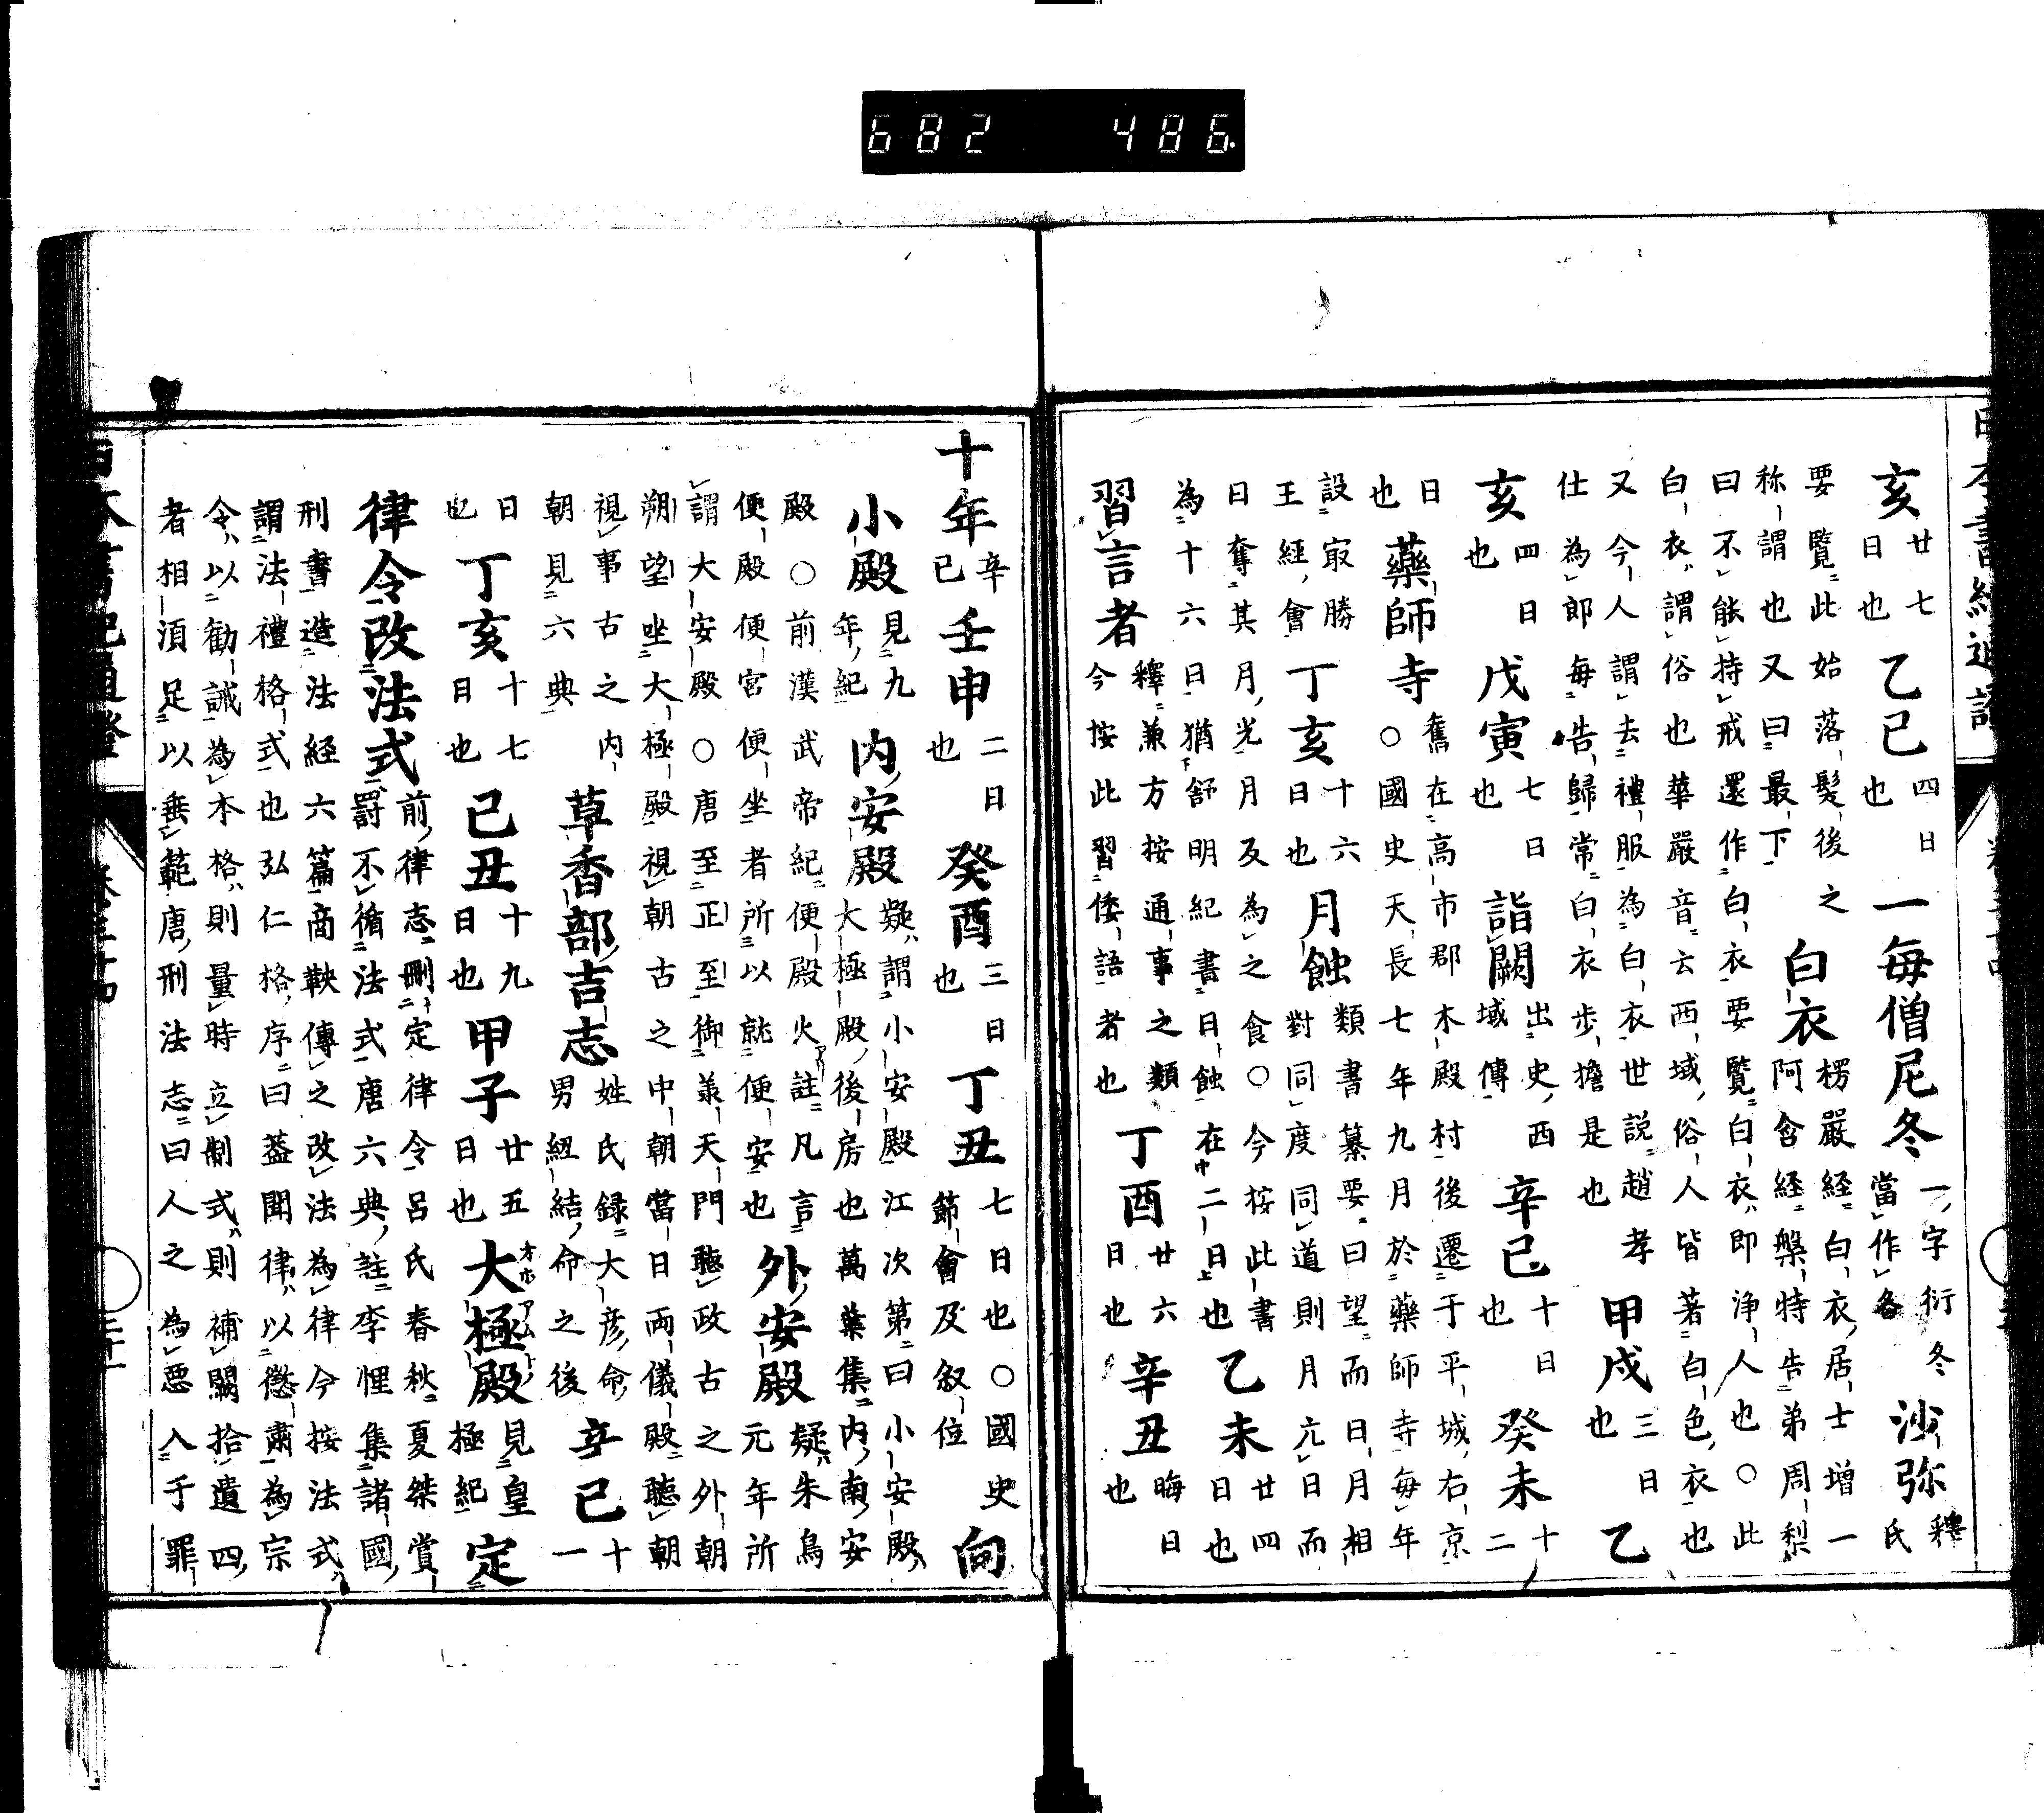 682 486
亥廿七日也乙巳四日也一毎僧尼冬一字衍冬當作各沙弥釋氏
要覽此始落髮後之称謂也又曰最下白衣楞嚴經白衣居士增一阿含経槃特告弟周梨
曰不能持戒還作白衣要覽白衣即浄人也○此
白衣謂俗也華嚴音云西域俗人皆著白色衣也
又今人謂去禮服為白衣世説趙孝仕為郎毎告歸常白衣步擔是也甲戌三日也乙
亥四日也戊寅七日也詣闕出史西域傳辛巳十日也癸未十二
日也藥師寺舊在高市郡木殿村後遷于平城右京○國史天長七年九月於藥師寺毎年
設㝡勝王經會丁亥十六日也月蝕類書纂要曰望而日月相對同度同道則月亢日而
日奪其月光月反為之食○今按此書為十六日猶舒明紀書日蝕在二日也乙未廿四日也
習言者釋兼方按通事之類今按此習倭語者也丁酉廿六日也辛丑晦日也
十年辛巳壬申二日也癸酉三日也丁丑七日也○國史節會及叙位向
小殿見九年紀内安殿疑謂小安殿江次第曰小安殿大極殿後房也萬葉集内南安
殿○前漢武帝紀便殿火註凡言便殿便宮便坐者所以就便安也外安殿疑朱鳥元年所
謂大安殿○唐至正至御羕天門聽政古之外朝
朔望坐大極殿視朝古之中朝當日兩儀殿聽朝
視事古之内朝見六典草香部吉志姓氏録大彦命男紐結命之後辛巳十一
日也丁亥十七日也己丑十九日也甲子廿五日也大極殿見皇極紀定
律令改法式前律志刪定律令呂氏春秋夏桀賞罰不循法式唐六典註李悝集諸國
刑書造法経六篇商鞅傳之改法為律今按法式
謂法禮格式也弘仁格序曰蓋聞律以懲肅為宗
令以勸誡為本格則量時立制式則補闕拾遺四
者相須足以垂範唐刑法志曰人之為悪入于罪